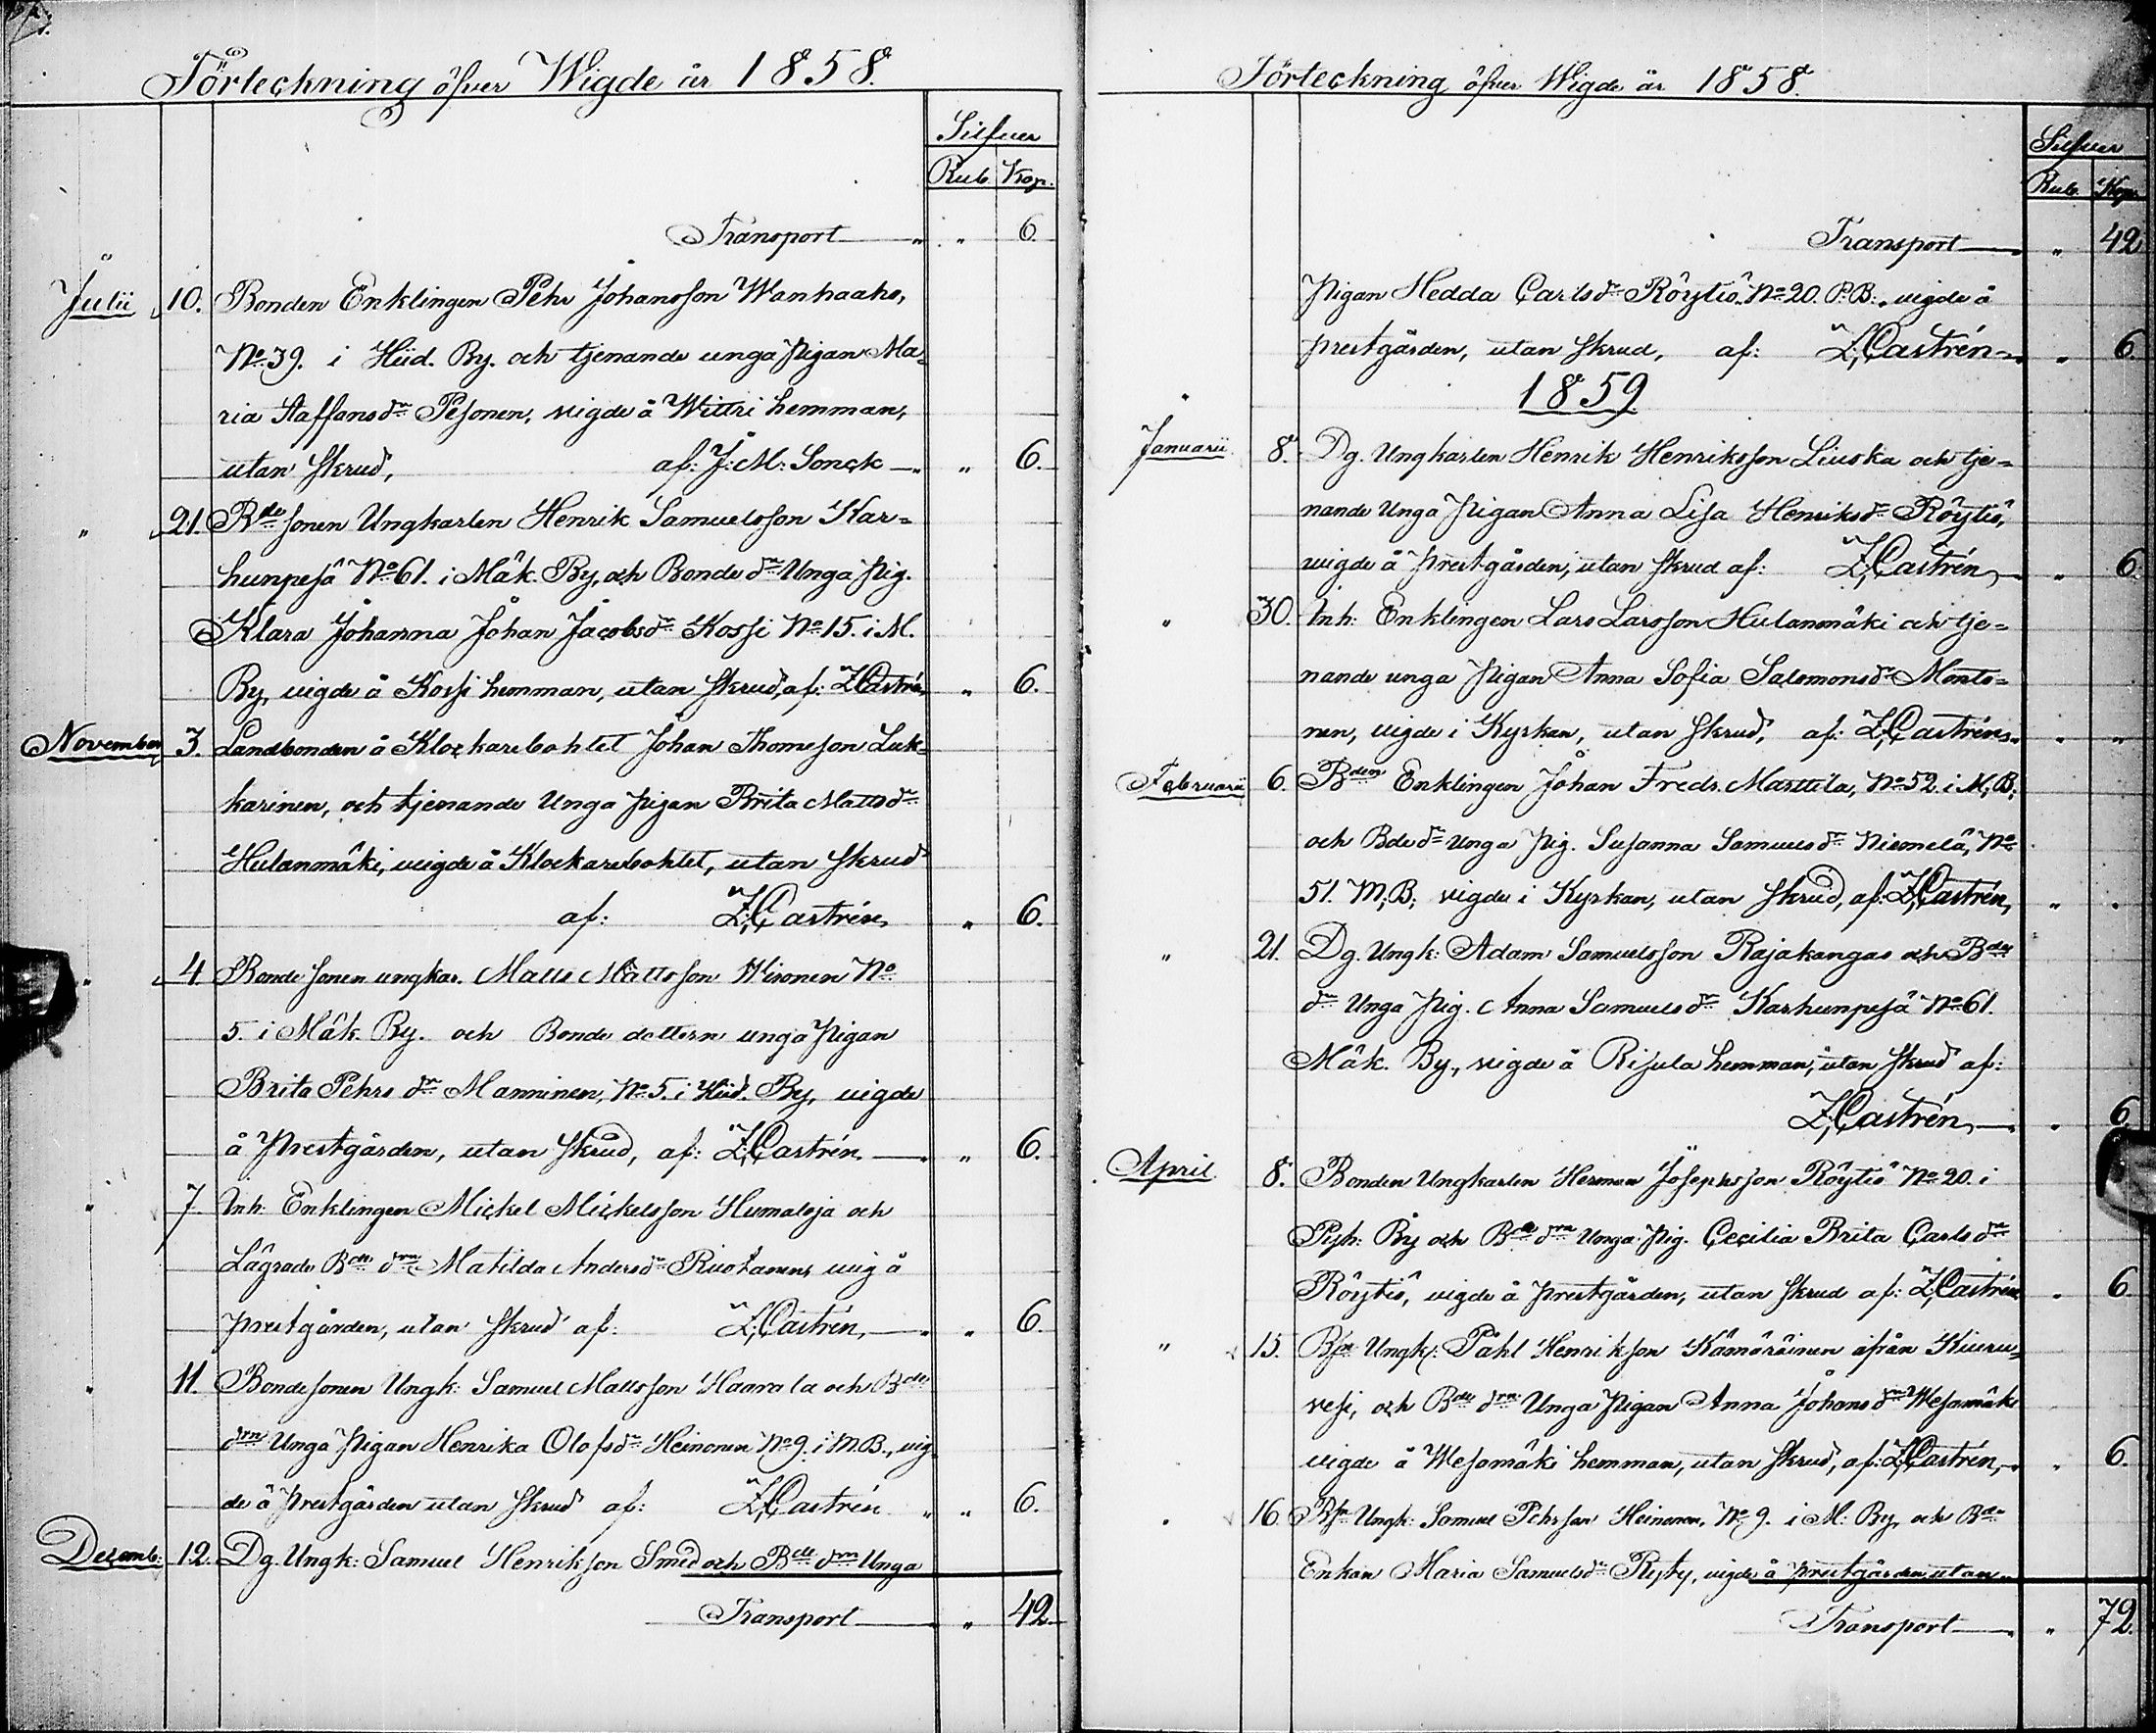 Förteckning öfver Wigde år 1858.
Silfver
Rub. Kop.
Transport " 6.
Julii 10. Bonden Enklingen Pehr Johansson Wanhaaho,
No 39. i Hiid. By. och tjenande unga Pigan Ma-
ria Staffansdr Pesonen, vigde å Wittri hemman,
utan skrud, af: J: M: Sonck " 6.
" 21. Bde sonen Ungkarlen Henrik Samuelsson Kar-
hunpesä No 61. i Mäk. By, och Bonde dr Unga Pig.
Klara Johanna Johan Jacobsdr Kossi No 15. i M.
By, vigde å Kossi hemman, utan skrud, af: Z: Castrén " 6.
November 3. Landbonden å Klockarebohlet Johan Thomeson Luk-
karinen, och tjenande Unga Pigan Brita Mattsdr
Hulanmäki, vigde å Klockarebohlet, utan skrud
af: Z: Castrén " 6.
" 4. Bonde sonen ungkar. Matts Mattsson Wironen No
5. i Mäk. By. och Bonde dottern unga Pigan
Brita Pehrs dr Manninen, No 5. i Hiid. By, vigde
å Prestgården, utan skrud, af: Z: Castrén " 6.
" 7. Inh. Enklingen Mickel Mickelsson Humaloja och
Lägrade Bde drn Matilda Andersdr Ruotanen, vig å
prestgården, utan skrud af: Z: Castrén " 6.
" 11. Bondesonen Ungk: Samuel Mattsson Haarala och Bde
drn Unga Pigan Henrika Olofsdr Heinonen No 9. i M.B., vig-
de å Prestgården utan skrud af: Z: Castrén " 6.
Decemb: 12. Dg. Ungk: Samuel Henrikson Smed och Bde drn Unga
Transport " 42
Förteckning öfver Wigde år 1858.
Silfver
Rub. Kop.
Transport " 42
Pigan Hedda Carlsdr Röytiö No 20. P.B., vigde å
prestgården, utan skrud, af: Z: Castrén " 6
1859
Januarii 8. Dg. Ungkarlen Henrik Henriksson Liuska och tje-
nande Unga Pigan Anna Lisa Henriksdr Röytiö,
vigde å Prestgården, utan skrud af: Z: Castrén " 6.
" 30. Inh: Enklingen Lars Larsson Hulanmäki och tje-
nande unga Pigan Anna Sofia Salomonsdr Monto-
nen, vigde i Kyrkan, utan skrud, af: Z: Castrén " "
Februarii 6. Bden Enklingen Johan Fredr. Marttila, No 52. i M; B;
och Bde dr Unga Pig. Susanna Samuelsdr Niemelä, No
51. M; B; vigde i Kyrkan, utan skrud, af: Z: Castrén, " "
" 21. Dg. Ungk: Adam Samuelsson Rajakangas och Bde
dr Unga Pig. Anna Samuelsdr Karhunpesä No 61.
Mäk. By., vigde å Risula hemman, utan skrud af:
Z: Castrén " 6.
April 8. Bonden Ungkarlen Herman Josephsson Röytiö No 20. i
Pyh. By och Bde drn Unga Pig. Cecilia Brita Carlsdr
Röytiö, vigde å Prestgården, utan skrud af: Z: Castrén " 6.
" 15. Bsn Ungk: Påhl Henrikson Kämäräinen ifrån Kiuru-
vesi, och Bde drn Unga Pigan Anna Johansdr Wesamäki
vigde å Wesamäki hemman, utan skrud, af: Z: Castrén, " 6.
" 16. Bsn Ungk: Samuel Pehrsson Heinonen, No 9. i M: By, och Bde
Enkan Maria Samuelsdr Ryty, vigde å prestgården utan
Transport " 72.